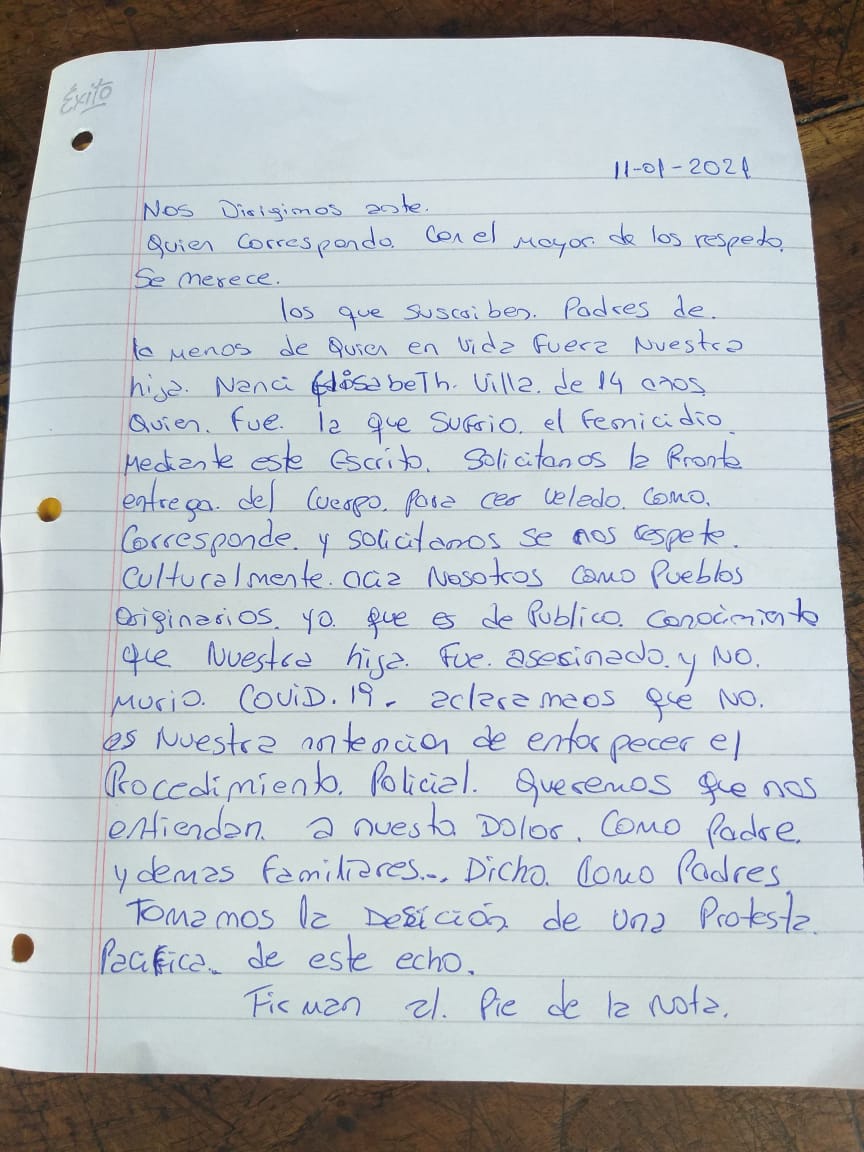 Éxito
11-01-2021
Nos Dirigimos ante.
Quien Corresponda. Con el mayor. de los respeto.
Se merece.
los que suscriben. Padres de.
la menos de Quien en vida fuera Nuestra
hija. Nanci Elisabeth. Villa. de 14 años
Quien. fue. la que sufrio. el femicidio.
Mediante este Escrito. Solicitanos la Pronta
entrega. del Cuerpo. para cer velado. Como.
Corresponde. y solicitamos se nos respete.
Culturalmente. acia Nosotros como Pueblos
originarios. ya que es de Publico. conocimiento
que Nuestra hija. fue. asesinada. y NO.
Murio. COVID. 19. aclaramaos que NO.
es Nuestra intencion de entorpecer el
Procedimiento. Policial. Queremos que nos
entiendan. a nuesta Dolor. como Padre.
y demas familiares... Dicho. Como Padres
Tomamos la Desición de una Protesta.
Pacifica.. de este echo.
Firman al. Pie de la Nota.